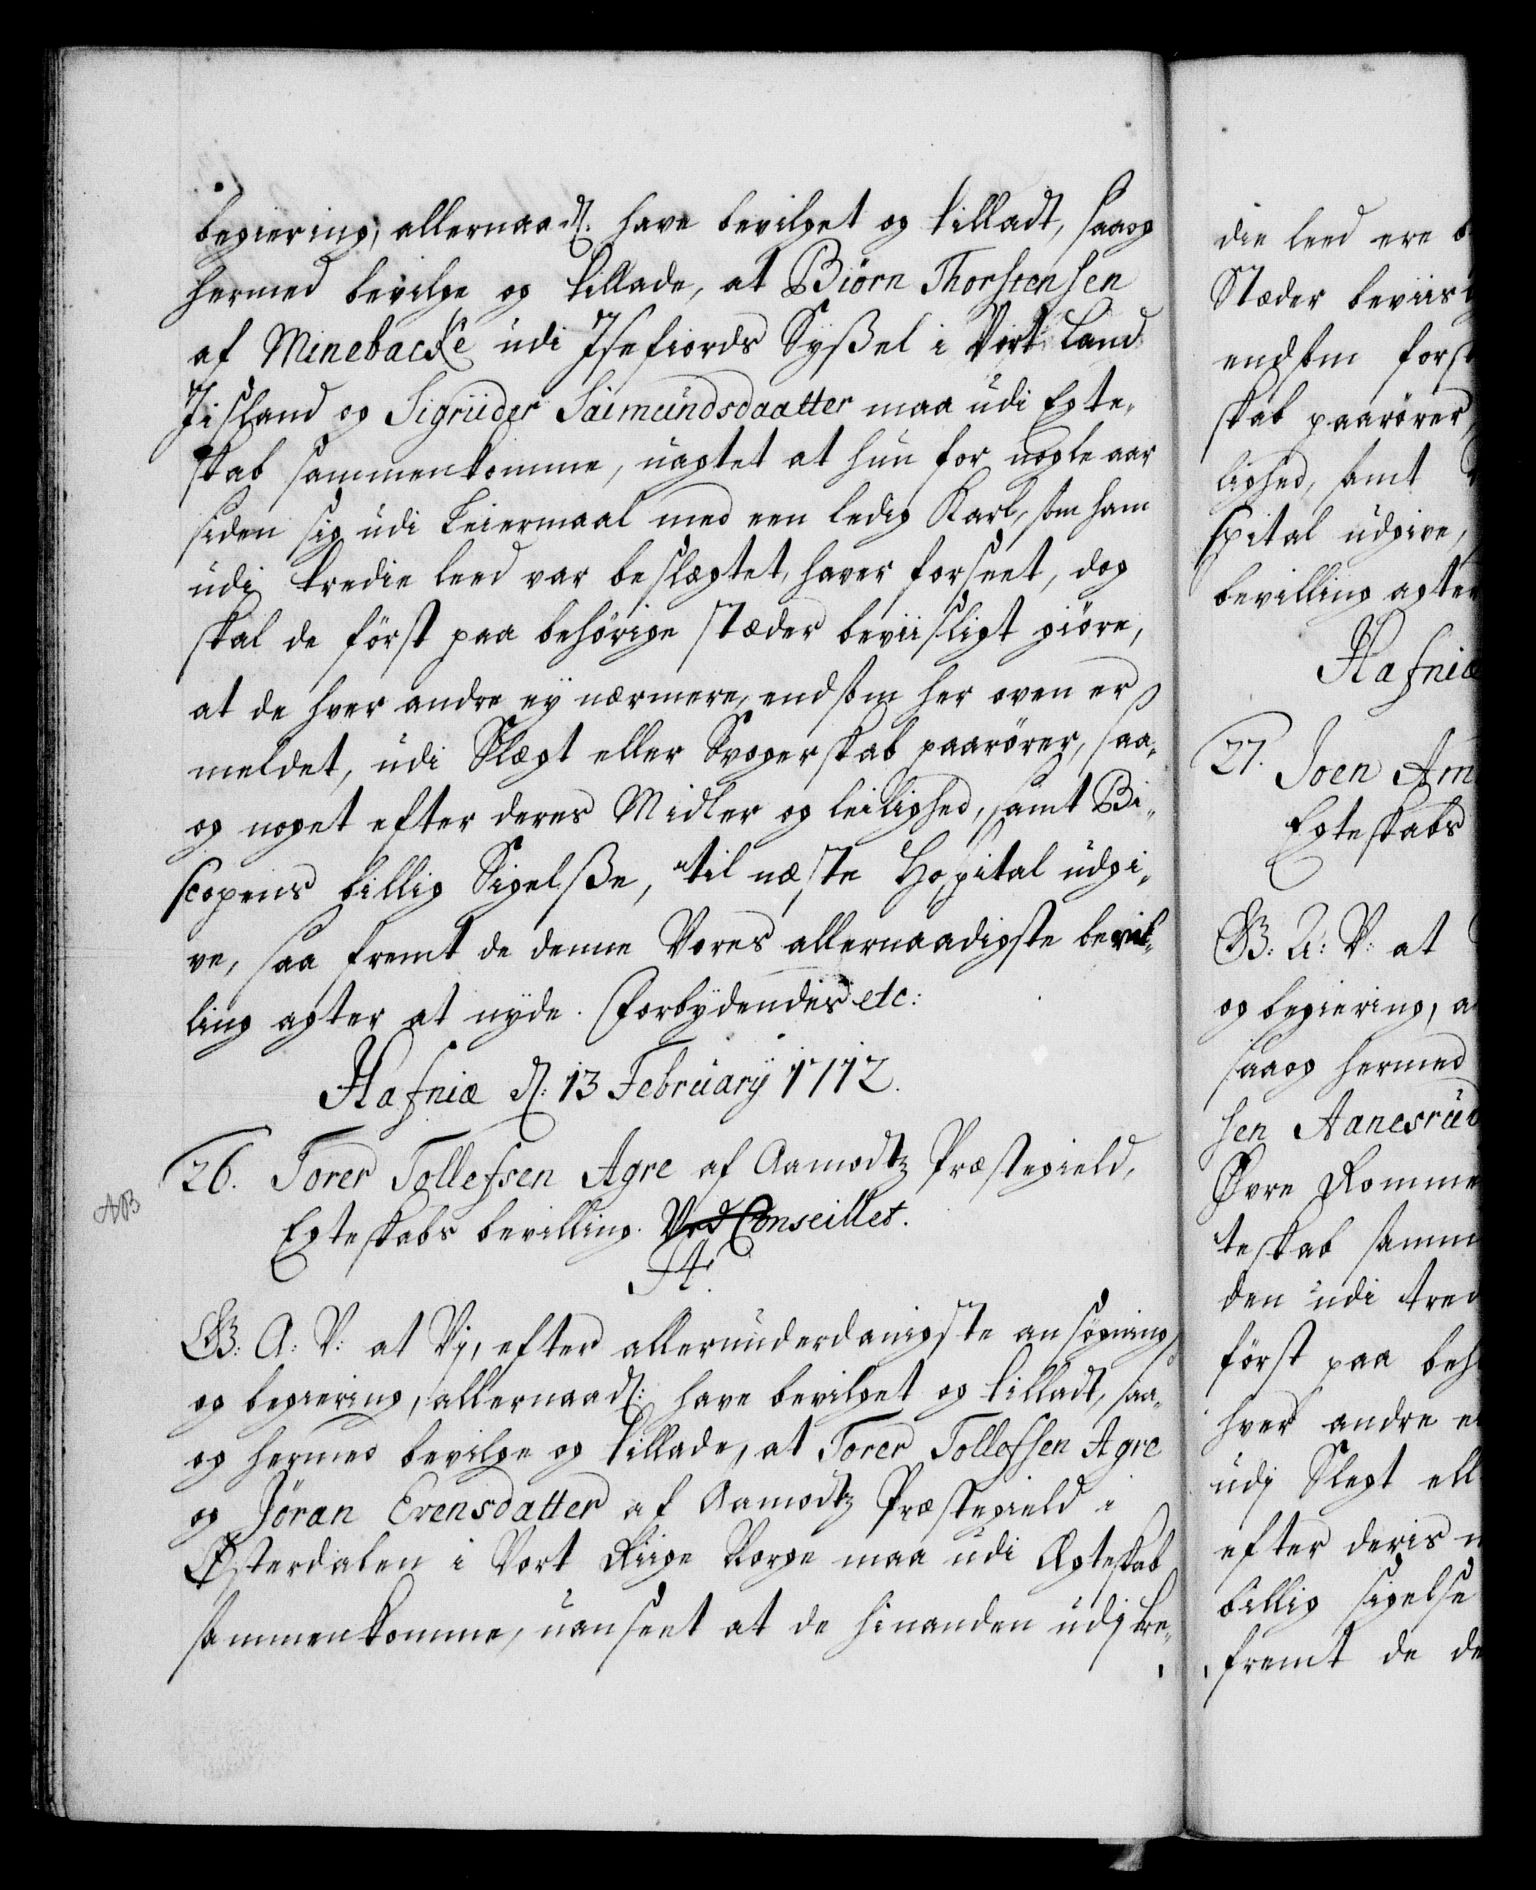 begiering, allernaad. have bevilget og tilladt, saaog
hermed bevilge og tillade, at Biörn Thorstensen
af Minebacke udi Isefiords Syßel i Vort Land
Jisland og Sigriider Saimundsdaatter maa udi Egte-
skab sammenkomme, uagtet at hun for nogle aar
siden sig udi Leiermaal med een ledig Karl, som ham
udj tredie leed var beslægtet, haver forseet, dog
skal de först paa behörige stæder beviisligt giöre,
at de hver andre ey nærmere, endsom her oven er
meldet, udi Slægt eller Svogerskab paarörer, saa-
og noget efter deres Midler og leilighed, samt Bi-
scopens billig Sigelße, til næste Hospital udgi-
ve, saa fremt de denne Vores allernaadigste bevil-
ling agter at nyde. Forbydendes etc:
Hafniæ d. 13 February 1712.
26. Torer Tollefsen Agre af Aamodtz Præstegield,
Egteskabs bevilling. Ved Conseillet.
AB
G: A: V: at Vj, efter allerunderdanigste ansögning
og begiering, allernaad: have bevilget og tilladt, saa-
og hermed bevilge og tillade, at Torer Tollofsen Agre
og Jöran Evensdatter af Aamodtz Præstegield i
Østerdalen i Vort Riige Norge maa udi Ægteskab
sammenkomme, uanseet at de hinanden udj tre-
die leed ere b
Stæder beviis
endsom forst
skab paarörer,
lighed, samt
spital udgive,
bevilling agter
Hafniæ
27. Joen Am
Egteskabs
G: A: V: at
og begiering, a
saaog hermed
sen Aanesrud
Øvre Romme
teskab samm
den udi tred
först paa beh
hver andre e
udj Slegt ell
efter deris m
billig sigelse
fremt de de